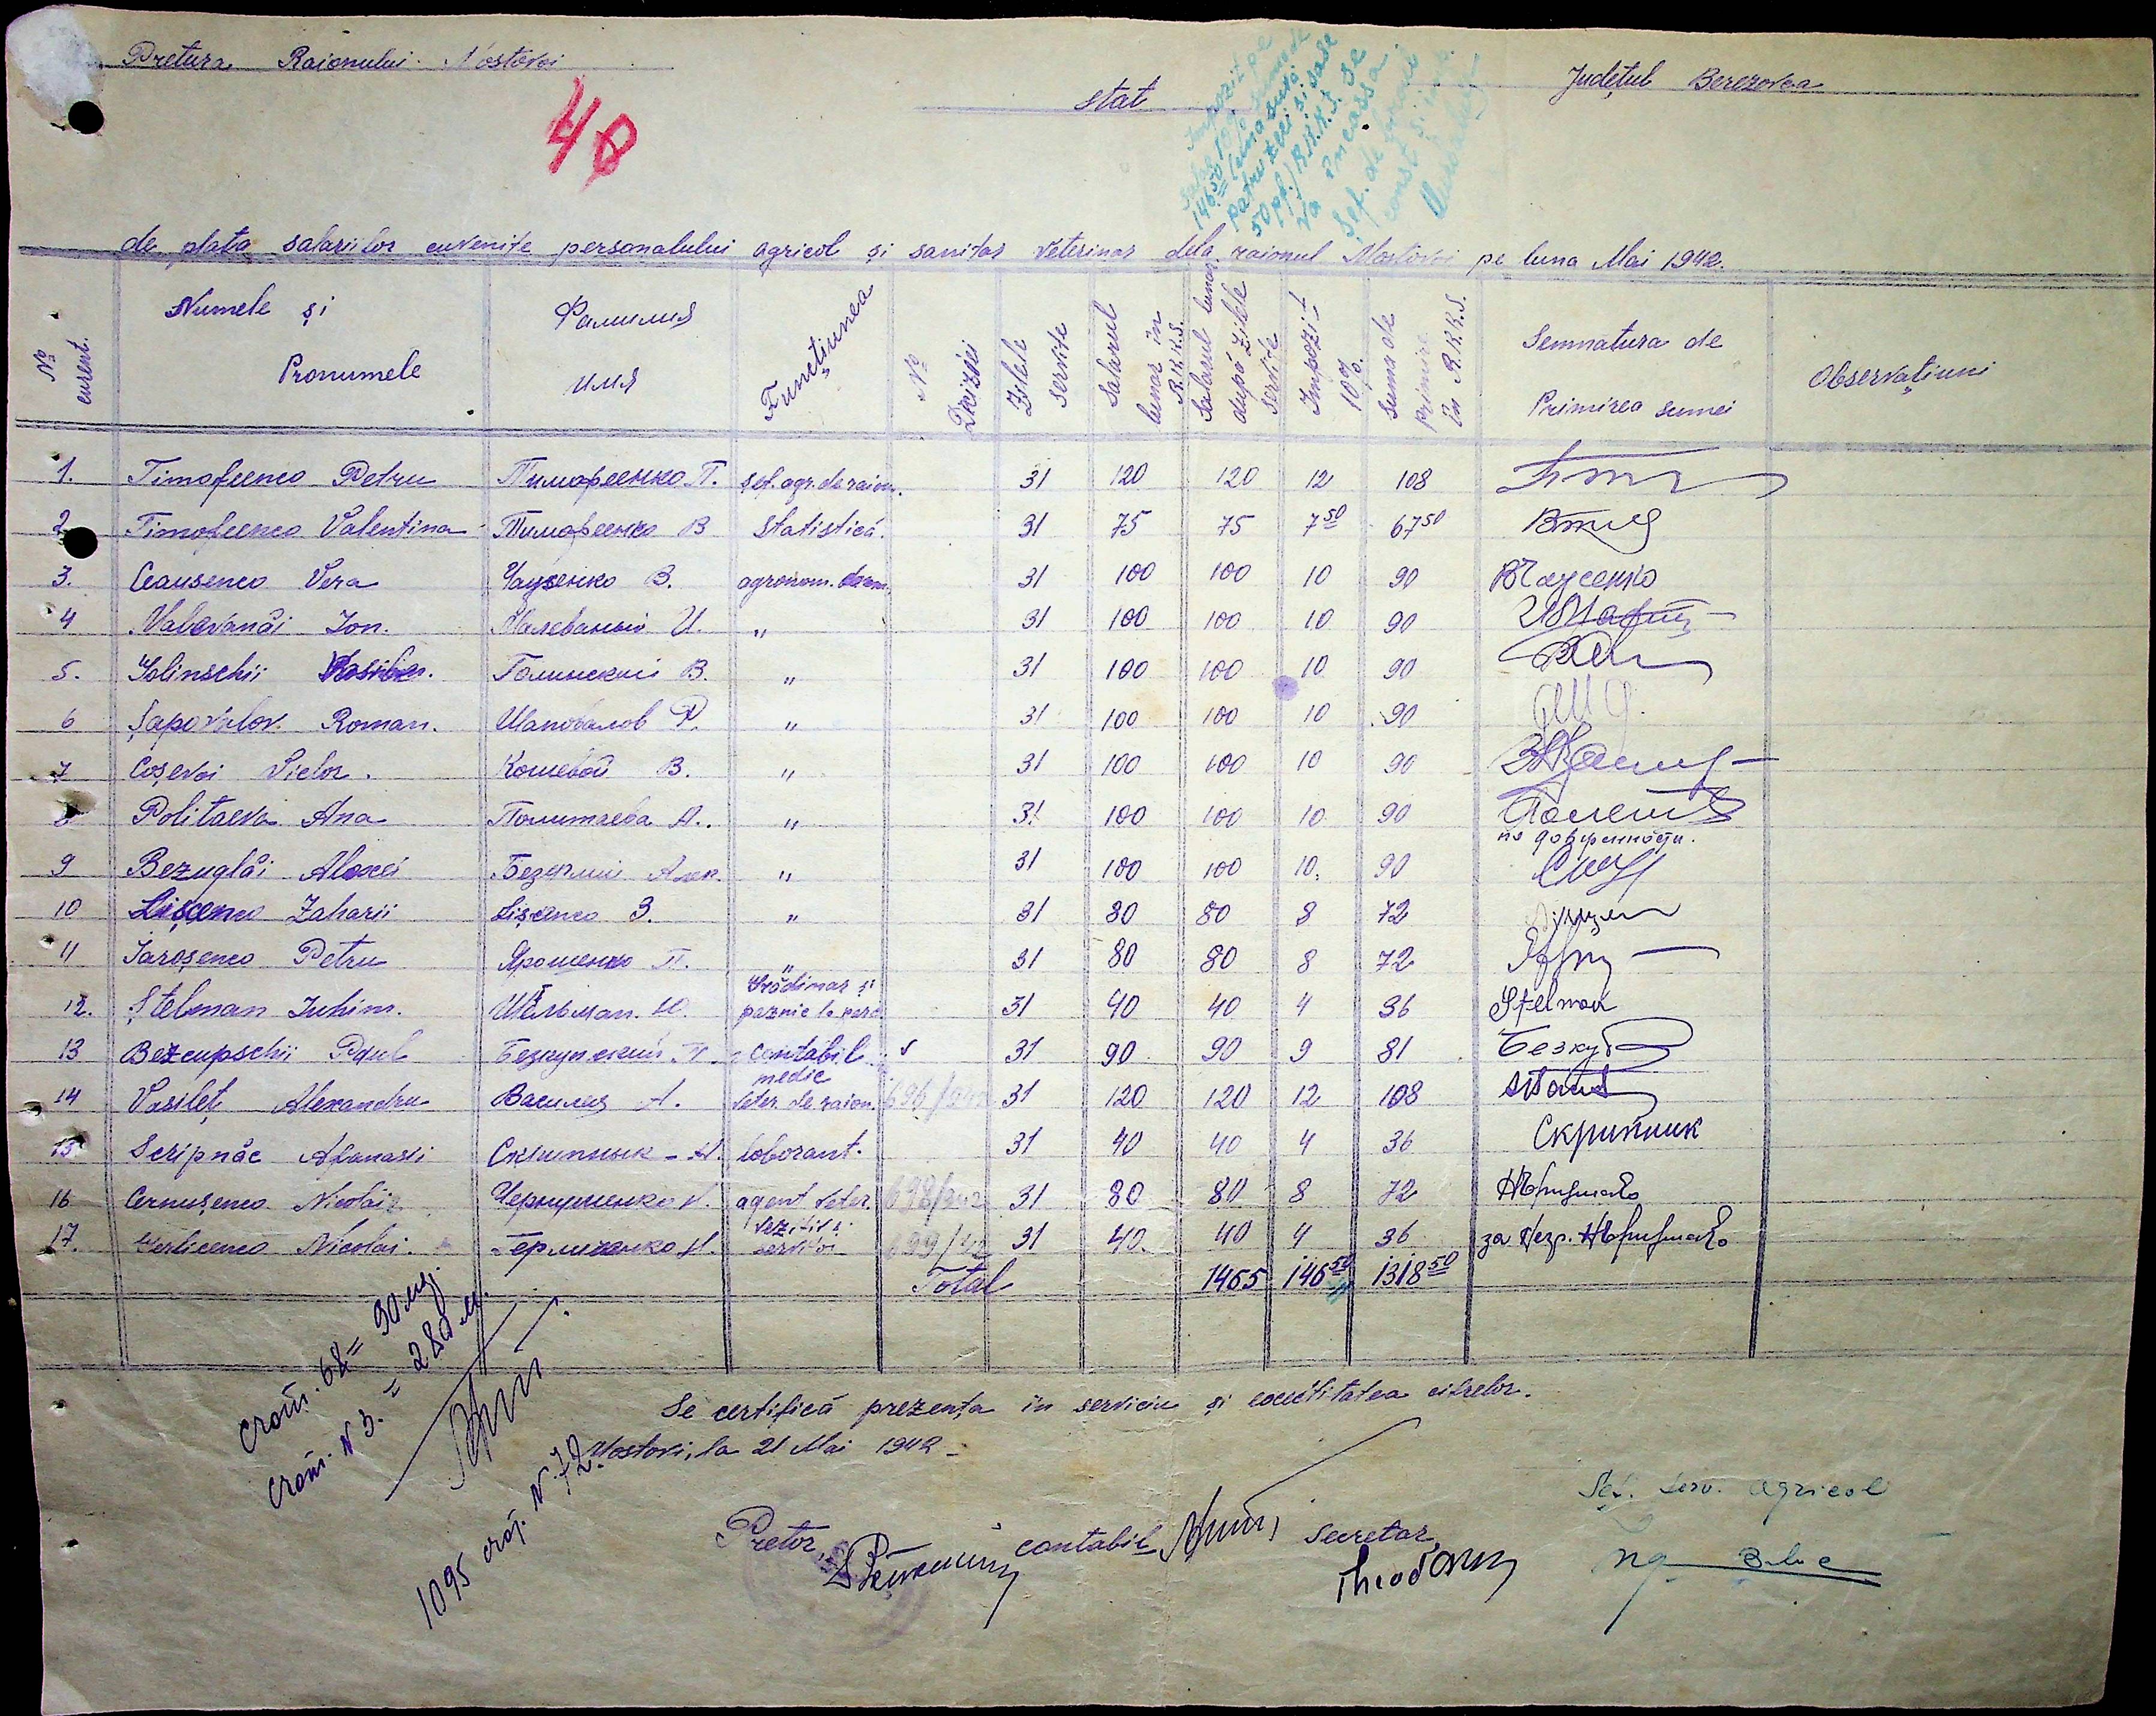 Pretura Raionului Mostovoi
Județul Berezovca
40
stat
Impozit pe
salar 10% suma de
146.50 (una sută
patru zeci și șase
50 pf.) R.K.K.S. se
va încassa
de plata salariilor cuvenite personalului agricol și sanitar veterinar dela raionul Mostovoi pe luna Mai 1942.
№ curent. Numele și Pronumele Фамилия Имя Funcțiunea № Deciziei Zilele servite Salarul lunar în R.K.K.S. Salarul lunar după zilele servite Impozit 10% Suma de primire în R.K.K.S. Semnatura de Primirea sumei Observațiuni
1. Timofeenco Petru Тимофеенко П. șef. agr. de raion. 31 120 120 12 108
2 Timofeenco Valentina Тимофеенко В Statistică. 31 75 75 7 50 67 50
3. Ceausenco Vera Чаусенко В. agronom. 31 100 100 10 90 ВЧаусенко
4 Malevanâi Ion. Малеваный И. " 31 100 100 10 90
5. Golinschii Голинский В. " 31 100 100 10 90
6 Șapovalov. Roman. Шаповалов Р. " 31 100 100 10 90
7 Coșevoi Victor. Кошевой В. " 31 100 100 10 90
8 Politaeva Ana Политаева А.. " 31 100 100 10 90
по доверенности.
9 Bezuglâi Alexei Безуглий Алек. " 31 100 100 10. 90
10 Lișcenco Zaharii Lișcenco З. " 31 80 80 8 72
11 Iaroșenco Petru Ярошенко П. " 31 80 80 8 72
12. Ștelman Iuhim. Штельман. Ю. Grădinar și paznic la 31 40 40 4 36 Stelman
13 Bezcupschii Paul Безкупский П. contabil 31 90 90 9 81 Безкуп
14 Vasileț Alexandru Василец А. medic veter. de raion. 696/942 31 120 120 12 108
15 Scripnâc Afanasii Скрипнык - А. loborant. 31 40 40 4 36 Скрипник
16 Cernușenco Nicolai Чернушенко Н. agent veter. 698/942 31 80 80 8 72 НЧернушенко
17. Gerlicenco Nicolai. Герличенко Н. servitor 699/42 31 40. 40 4 36 за негр. НЧернушенко
Total 1465 146 50 1318 50
стат. 68 = 90 мд.
стат. N 3. = 280 м.
Se certifică prezența în serviciu și exactitatea cifrelor.
Mostovi, la 21 Mai 1942 -
1095 N. 72
Pretor,
contabil
Secretar,
Theodoru
Șef. serv. agricol